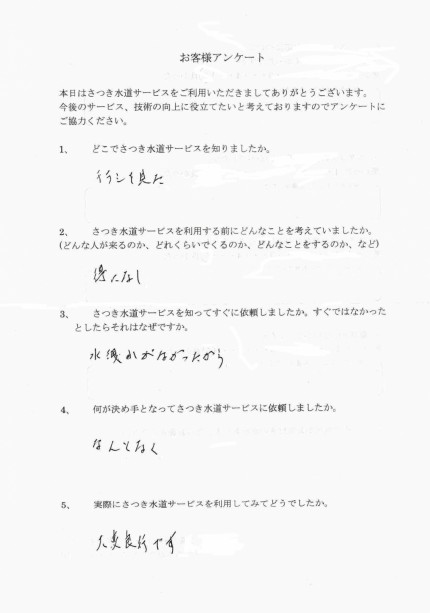 お客様アンケート
本日はさつき水道サービスをご利用いただきましてありがとうございます。
今後のサービス、技術の向上に役立てたいと考えておりますのでアンケートに
ご協力ください。
1、 どこでさつき水道サービスを知りましたか。
チラシを見た
2、 さつき水道サービスを利用する前にどんなことを考えていましたか。
(どんな人が来るのか、どれくらいでくるのか、どんなことをするのか、など)
特になし
3、 さつき水道サービスを知ってすぐに依頼しましたか。すぐではなかった
としたらそれはなぜですか。
水
ながったから
4、 何が決め手となってさつき水道サービスに依頼しましたか。
なんとなく
5、 実際にさつき水道サービスを利用してみてどうでしたか。
大変良好です